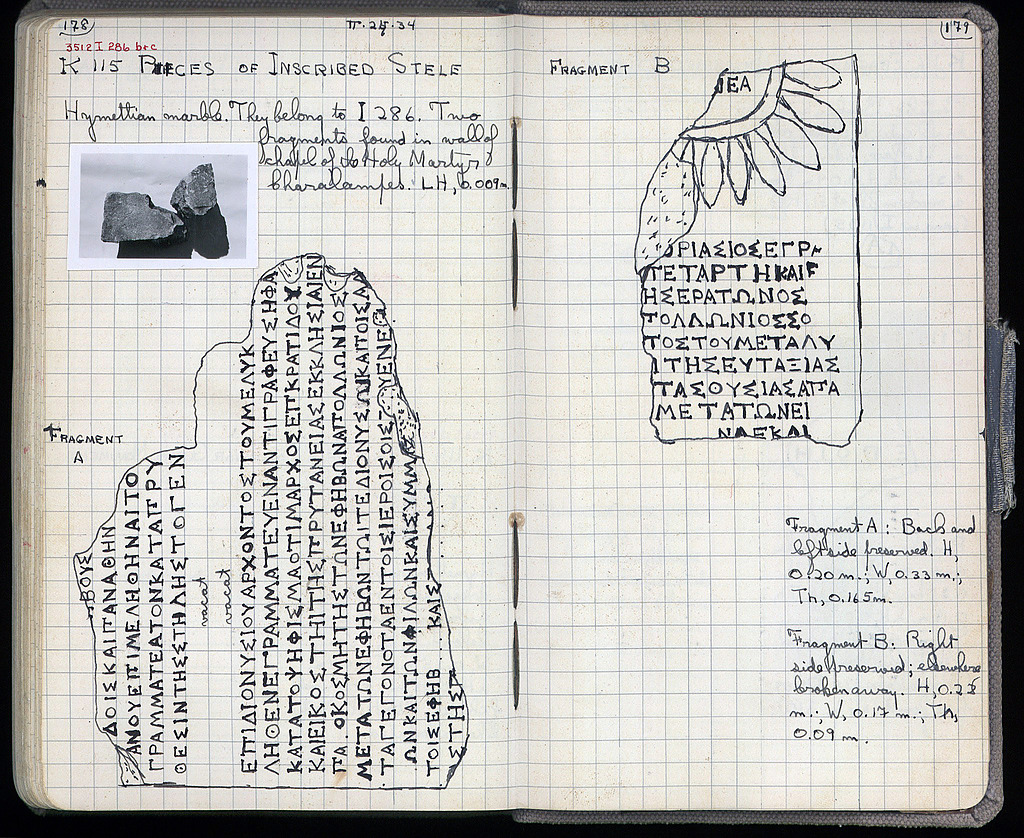 178
II·24·34
3512 I 286 b+c
K 115 PIECES OF INSCRIBED STELE
Hymettian marble. They belong to I 286. Two
fragments found in wall of
chapel of the Holy Martyr
Charalampes. LH, 0.009m.
FRAGMENT
A
ΒΟΥΣ
ΔΟΙΣΚΑΙΠΑΝΑΘΗΝ
ΑΝΟΥΕΠΙΜΕΛΗΘΗΝΑΙΤΟ
ΓΡΑΜΜΑΤΕΑΤΟΝΚΑΤΑΠΡΥ
ΘΕΣΙΝΤΗΣΣΤΗΛΗΣΤΟΓΕΝ
vacat
vacat
ΕΠΙΔΙΟΝΥΣΙΟΥΑΡΧΟΝΤΟΣΤΟΥΜΕΛΥΚ
ΛΗΘΕΝΕΓΡΑΜΜΑΤΕΥΕΝΑΝΤΙΓΡΑΦΕΥΣΗΦΑ
ΚΑΤΑΤΟΥΗΦΙΣΜΑΟΤΙΜΑΡΧΟΣΕΠΙΚΡΑΤΙΔΟΥ
ΚΑΙΕΙΚΟΣΤΗΙΤΗΣΠΡΥΤΑΝΕΙΑΣΕΚΚΛΗΣΙΑΙΕΝ
ΓΑ ΟΚΟΣΜΗΤΗΣΤΩΝΕΦΗΒΩΝΑΠΟΛΛΩΝΙΟΣ
ΜΕΤΑΤΩΝΕΦΗΒΩΝΤΩΙΤΕΔΙΟΝΥΣΩΙΚΑΙΤΟΙΣΑ
ΤΑΓΕΓΟΝΟΤΑΕΝΤΟΙΣΙΕΡΟΙΣΟΙΣ ΥΕΝΕ
ΩΝΚΑΙΤΩΝΦΙΛΩΝΚΑΙΣΥΜΜΑ
ΤΟΙΣΕΦΗΒ ΚΑΙΣ
ΣΤΗΣ
179
FRAGMENT B
ΕΑ
ΟΡΙΑΣΙΟΣΕΓΡΑ
ΤΕΤΑΡΤΗΚΑΙΕ
ΗΣΕΡΑΤΩΝΟΣ
ΤΟΛΛΩΝΙΟΣΣΟ
ΤΟΣΤΟΥΜΕΤΑΛΥ
ΙΤΗΣΕΥΤΑΞΙΑΣ
ΤΑΣΟΥΣΙΑΣΑΠΑ
ΜΕΤΑΤΩΝΕΙ
ΝΑΕΚΑΙ
Fragment A: Back and
left side preserved. H,
0.20 m.; W, 0.33 m.;
Th, 0.165m.
Fragment B: Right
side preserved; elsewhere
broken away. H, 0.2
m.; W, 0.17 m.; Th,
0.09 m.